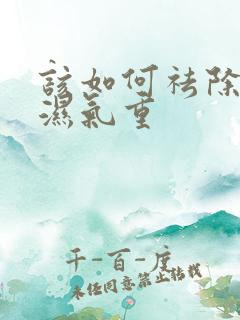 该如何祛除
濕氣重
千-百-度
未经同意禁止转载